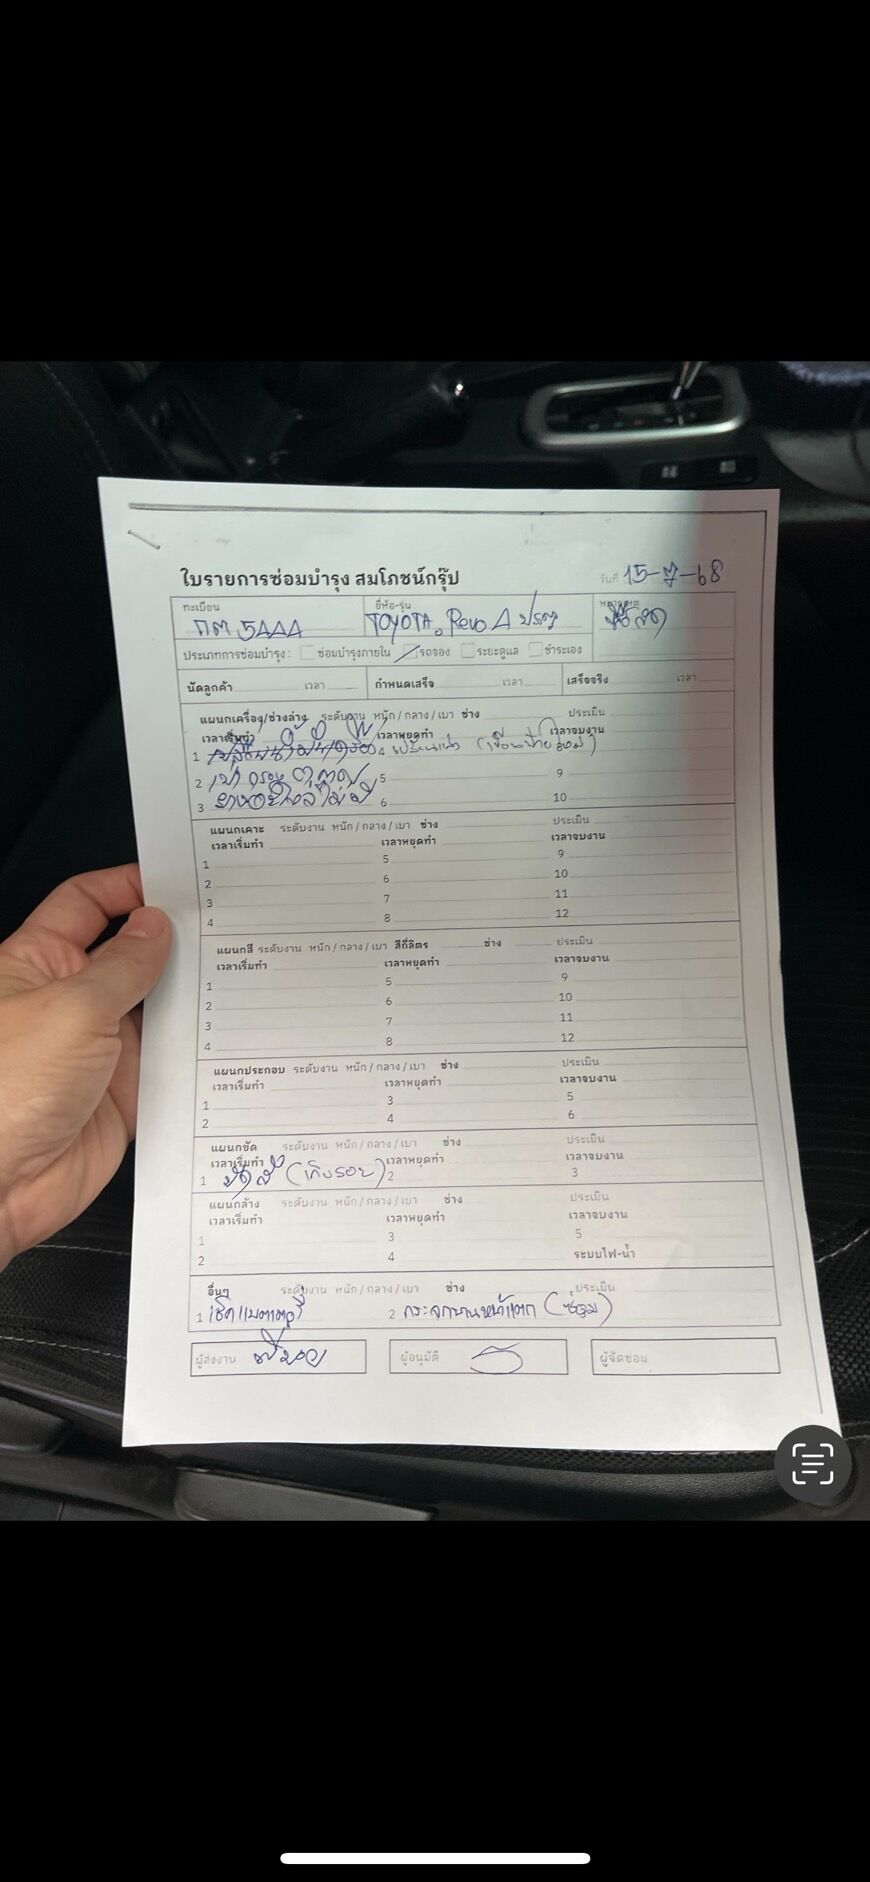 ใบรายการซ่อมบำรุง สมโภชน์กรุ๊ป วันที่ 15-7-68
ทะเบียน ยี่ห้อ-รุ่น หมายเหตุ
TOYOTA Revo 4 ประตู
ประเภทการซ่อมบำรุง : ซ่อมบำรุงภายใน รถจอง ระยะดูแล ชำระเอง
นัดลูกค้า เวลา กำหนดเสร็จ เวลา เสร็จจริง เวลา
แผนกเครื่อง/ช่วงล่าง ระดับงาน หนัก / กลาง / เบา ช่าง ประเมิน
เวลาเริ่มทำ เวลาหยุดทำ เวลาจบงาน
1 เปลี่ยนน้ำมันเครื่อง 4
2 เป่ากรอง 5 9
3 ยางอะไหล่ไม่มี 6 10
แผนกเคาะ ระดับงาน หนัก / กลาง / เบา ช่าง ประเมิน
เวลาเริ่มทำ เวลาหยุดทำ เวลาจบงาน
1 5 9
2 6 10
3 7 11
4 8 12
แผนกสี ระดับงาน หนัก / กลาง / เบา สีกี่ลิตร ช่าง ประเมิน
เวลาเริ่มทำ เวลาหยุดทำ เวลาจบงาน
1 5 9
2 6 10
3 7 11
4 8 12
แผนกประกอบ ระดับงาน หนัก / กลาง / เบา ช่าง ประเมิน
เวลาเริ่มทำ เวลาหยุดทำ เวลาจบงาน
1 3 5
2 4 6
แผนกขัด ระดับงาน หนัก / กลาง / เบา ช่าง ประเมิน
เวลาเริ่มทำ เวลาหยุดทำ เวลาจบงาน
1 ขัดสี (เก็บรอย) 2 3
แผนกล้าง ระดับงาน หนัก / กลาง / เบา ช่าง ประเมิน
เวลาเริ่มทำ เวลาหยุดทำ เวลาจบงาน
1 3 5
2 4 ระบบไฟ-น้ำ
อื่นๆ ระดับงาน หนัก / กลาง / เบา ช่าง ประเมิน
1 เช็คแบตเตอรี่ 2 กระจกบานหน้าแตก (ซ่อม)
ผู้ส่งงาน ผู้อนุมัติ ผู้จัดซ่อม